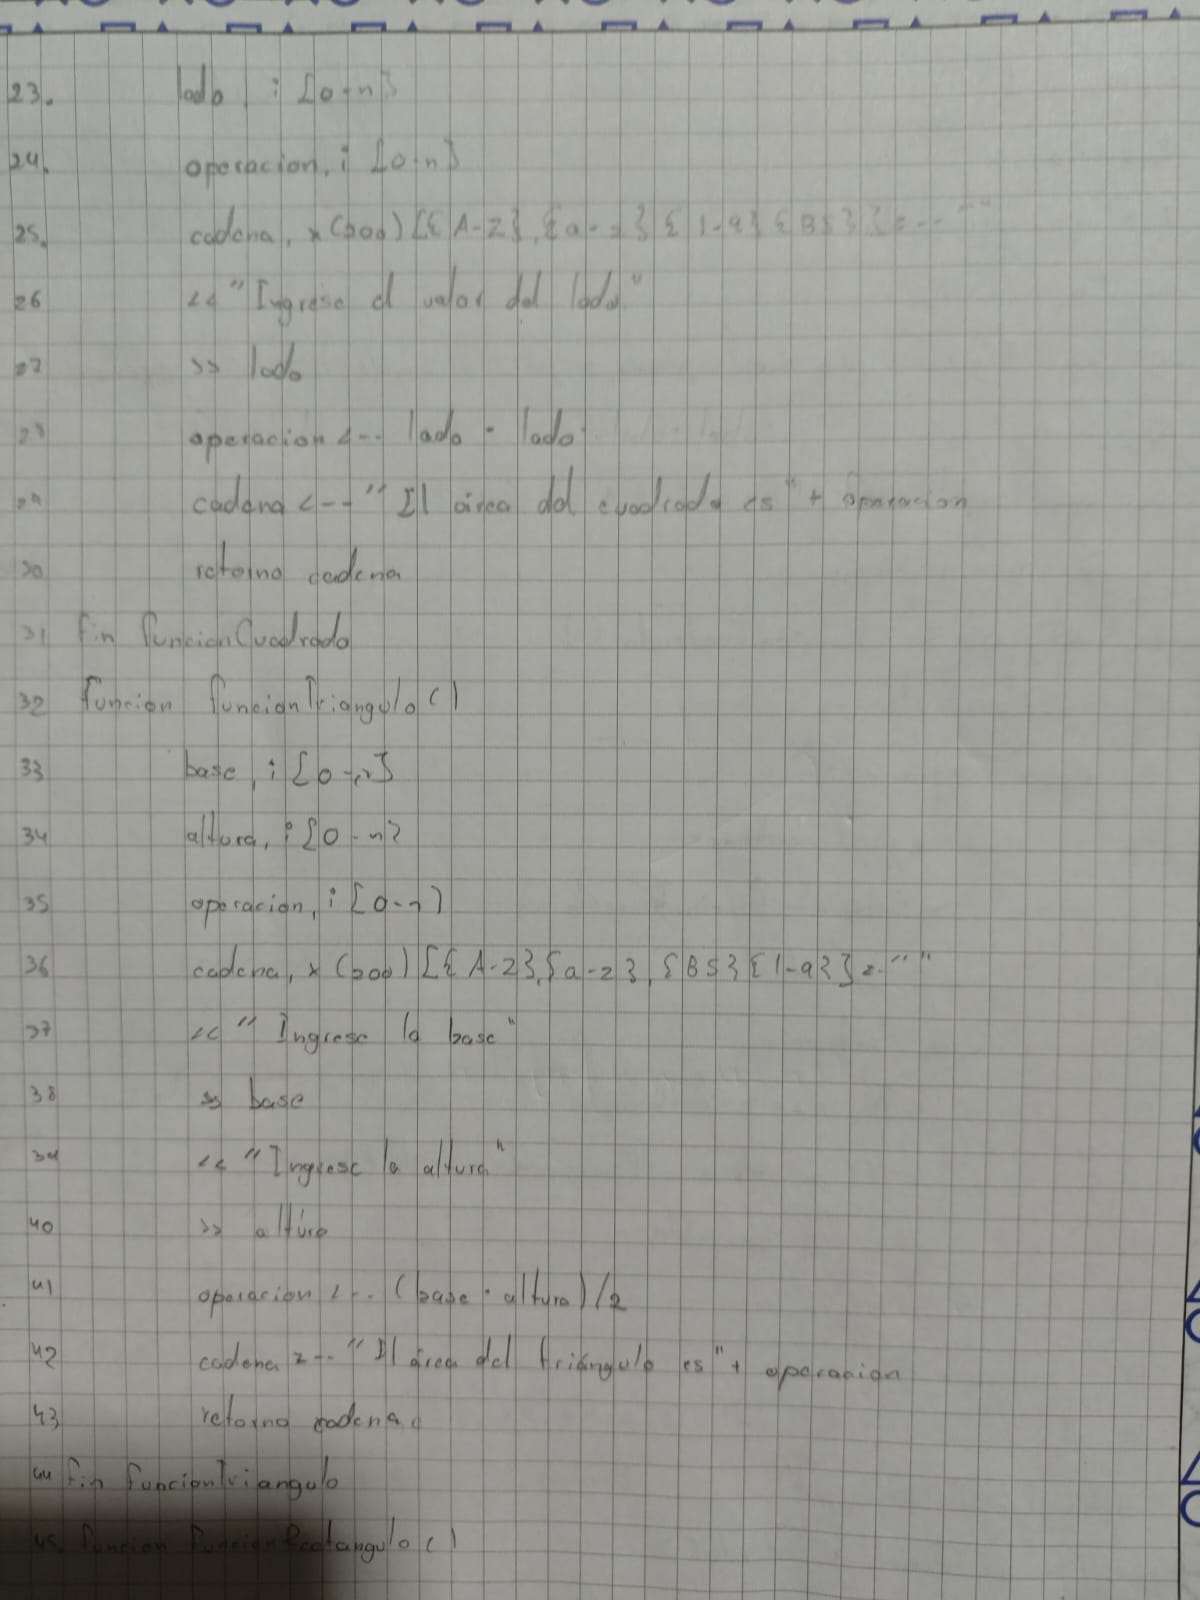 23. lado, i [0-n]
24. operacion, i [0-n]
25. cadena, x(200)[{A-Z},{a-z}{1-9}{BS}] <-- " "
26 << "Ingrese el valor del lado"
27 >> lado
28 operacion <-- lado * lado
29 cadena <-- "El área del cuadrado es" + operacion
30 retorno cadena
31 fin funcionCuadrado
32 funcion funcionTriangulo()
33 base, i [0-n]
34 altura, i [0-n]
35 operacion, i [0-n]
36 cadena, x (200) [{A-Z},{a-z},{BS}{1-9}] <-- " "
37 << "Ingrese la base"
38 >> base
39 << "Ingrese la altura"
40 >> altura
41 operacion <-- (base * altura)/2
42 cadena <-- "El área del triángulo es" + operacion
43 retorno cadena
44 fin funcionTriangulo
45. funcion funcionRectangulo()